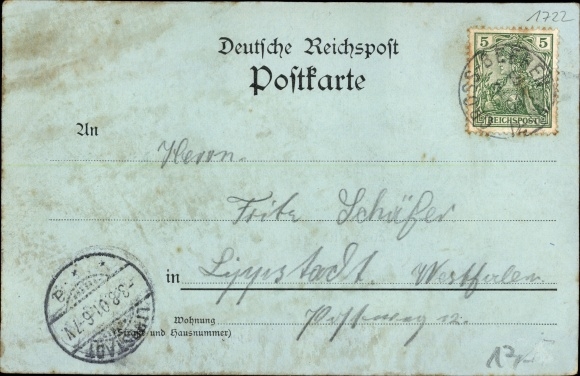 1722
Deutsche Reichspost
Postkarte
5 5
REICHSPOST
An
Herrn.
Fritz Schäfer
in Lippstadt. Westfalen
Wohnung
(Straße und Hausnummer)
Postweg 12.
LIPPSTADT